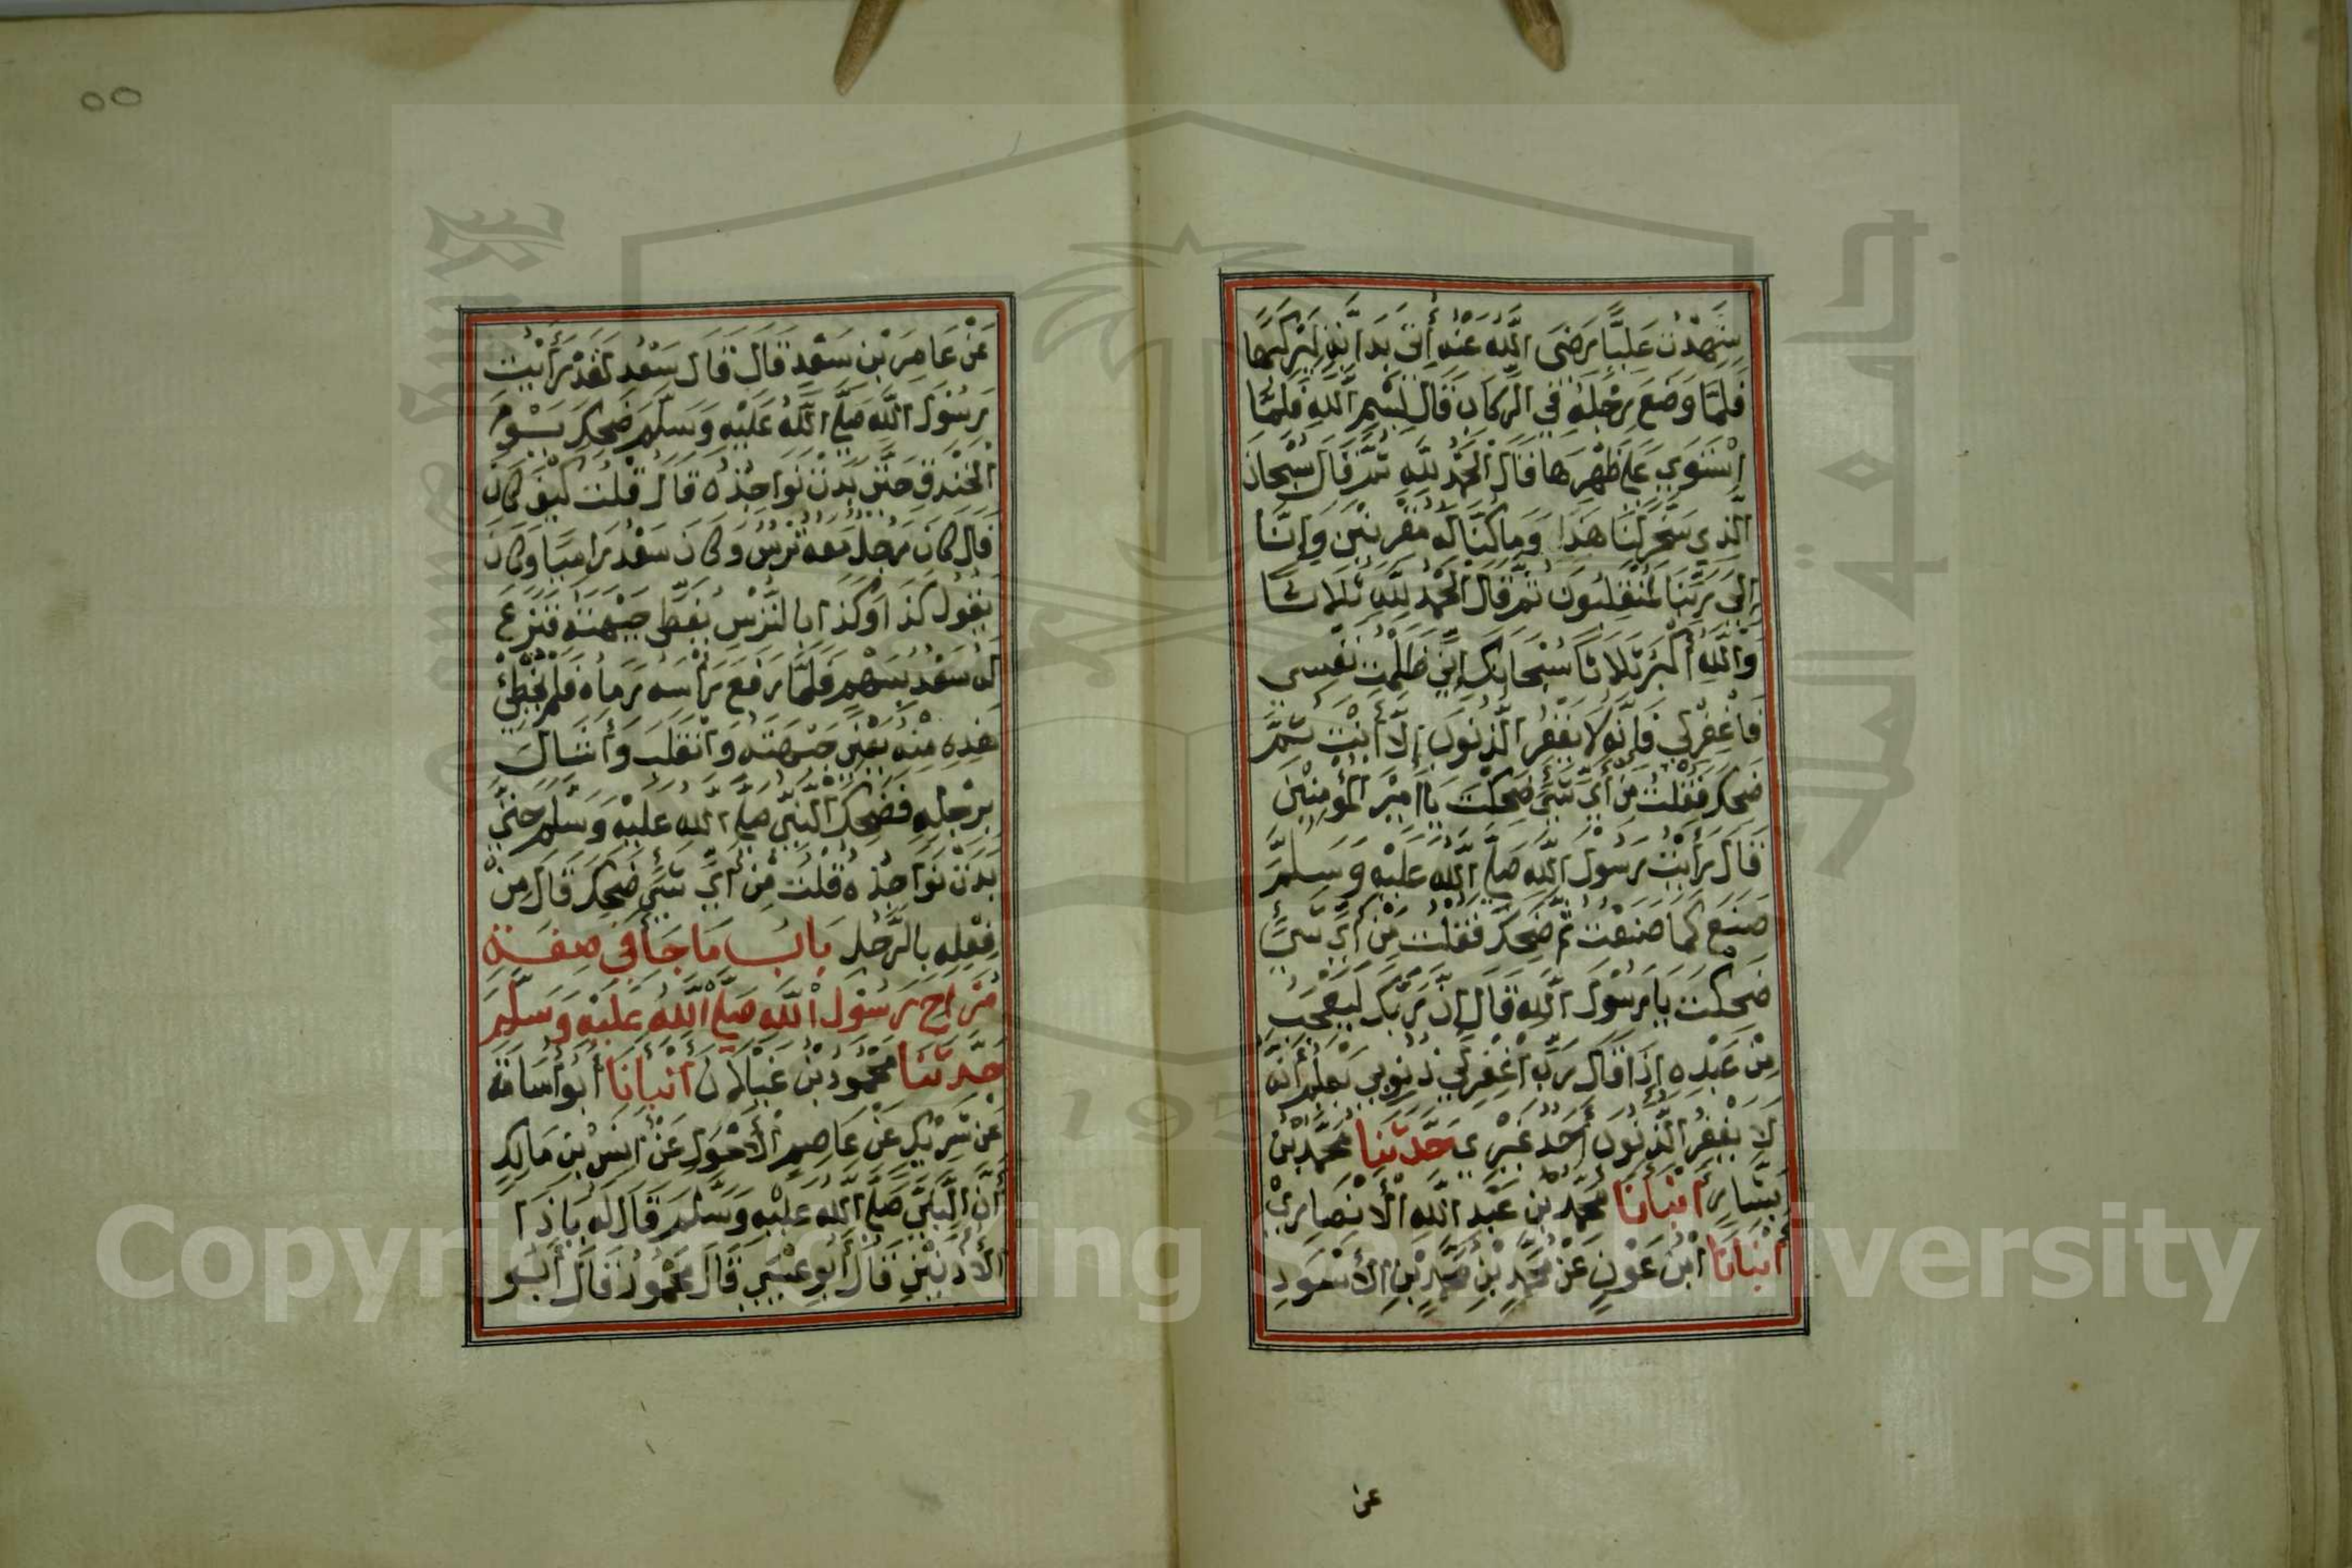 شَهِدْتُ عَلِيًّا رَضِيَ اللَّهُ عَنْهُ أُتِيَ بِدَابَّةٍ لِيَرْكَبَهَا
فَلَمَّا وَضَعَ رِجْلَهُ فِي الرِّكَابِ قَالَ بِسْمِ اللَّهِ فَلَمَّا
اسْتَوَى عَلَى ظَهْرِهَا قَالَ الْحَمْدُ لِلَّهِ ثُمَّ قَالَ سُبْحَانَ
الَّذِي سَخَّرَ لَنَا هَذَا وَمَا كُنَّا لَهُ مُقْرِنِينَ وَإِنَّا
إِلَى رَبِّنَا لَمُنْقَلِبُونَ ثُمَّ قَالَ الْحَمْدُ لِلَّهِ ثَلَاثًا
وَاللَّهُ أَكْبَرُ ثَلَاثًا سُبْحَانَكَ إِنِّي ظَلَمْتُ نَفْسِي
فَاغْفِرْ لِي فَإِنَّهُ لَا يَغْفِرُ الذُّنُوبَ إِلَّا أَنْتَ ثُمَّ
ضَحِكَ فَقُلْتُ مِنْ أَيِّ شَيْءٍ ضَحِكْتَ يَا أَمِيرَ الْمُؤْمِنِينَ
قَالَ رَأَيْتُ رَسُولَ اللَّهِ صَلَّى اللَّهُ عَلَيْهِ وَسَلَّمَ
صَنَعَ كَمَا صَنَعْتُ ثُمَّ ضَحِكَ فَقُلْتُ مِنْ أَيِّ شَيْءٍ
ضَحِكْتَ يَا رَسُولَ اللَّهِ قَالَ إِنَّ رَبَّكَ لَيَعْجَبُ
مِنْ عَبْدِهِ إِذَا قَالَ رَبِّ اغْفِرْ لِي ذُنُوبِي يَعْلَمُ أَنَّهُ
لَا يَغْفِرُ الذُّنُوبَ أَحَدٌ غَيْرِي حَدَّثَنَا مُحَمَّدُ بْنُ
بَشَّارٍ أَنْبَأَنَا مُحَمَّدُ بْنُ عَبْدِ اللَّهِ الْأَنْصَارِيُّ
أَنْبَأَنَا ابْنُ عَوْنٍ عَنْ مُحَمَّدِ بْنِ مُحَمَّدِ بْنِ الْأَسْوَدِ
عن
٥٥
عَنْ عَامِرِ بْنِ سَعْدٍ قَالَ قَالَ سَعْدٌ لَقَدْ رَأَيْتُ
رَسُولَ اللَّهِ صَلَّى اللَّهُ عَلَيْهِ وَسَلَّمَ ضَحِكَ يَوْمَ
الْخَنْدَقِ حَتَّى بَدَتْ نَوَاجِذُهُ قَالَ قُلْتُ كَيْفَ كَانَ
قَالَ كَانَ رَجُلٌ مَعَهُ تُرْسٌ وَكَانَ سَعْدٌ رَامِيًا وَكَانَ
يَقُولُ كَذَا وَكَذَا بِالتُّرْسِ يُغَطِّي جَبْهَتَهُ فَنَزَعَ
لَهُ سَعْدٌ بِسَهْمٍ فَلَمَّا رَفَعَ رَأْسَهُ رَمَاهُ فَلَمْ يُخْطِئْ
هَذِهِ مِنْهُ يَعْنِي جَبْهَتَهُ وَانْقَلَبَ وَأَشَالَ
بِرِجْلِهِ فَضَحِكَ النَّبِيُّ صَلَّى اللَّهُ عَلَيْهِ وَسَلَّمَ حَتَّى
بَدَتْ نَوَاجِذُهُ قُلْتُ مِنْ أَيِّ شَيْءٍ ضَحِكَ قَالَ مِنْ
فِعْلِهِ بِالرَّجُلِ بَابُ مَا جَاءَ فِي صِفَةِ
مُزَاحِ رَسُولِ اللَّهِ صَلَّى اللَّهُ عَلَيْهِ وَسَلَّمَ
حَدَّثَنَا مَحْمُودُ بْنُ غَيْلَانَ أَنْبَأَنَا أَبُو أُسَامَةَ
عَنْ شَرِيكٍ عَنْ عَاصِمٍ الْأَحْوَلِ عَنْ أَنَسِ بْنِ مَالِكٍ
أَنَّ النَّبِيَّ صَلَّى اللَّهُ عَلَيْهِ وَسَلَّمَ قَالَ لَهُ يَا ذَا
الْأُذُنَيْنِ قَالَ أَبُو عِيسَى قَالَ مَحْمُودٌ قَالَ أَبُو
Copyright King Saud University